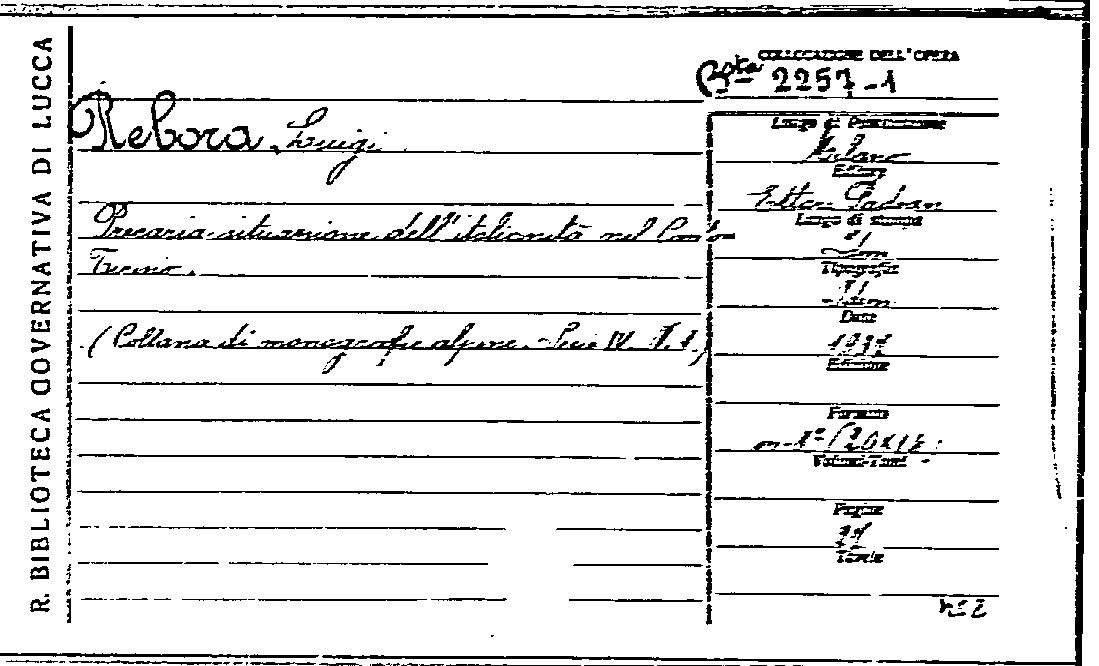 R. BIBLIOTECA GOVERNATIVA DI LUCCA
COLLOCAZIONE DELL'OPERA
Bsta 2257-1
Rebora, Luigi
Precaria situazione dell'italianità nel Canton
Ticino.
(Collana di monografie alpine. - Serie IV. N. 1.)
Luogo di Pubblicazione
Milano
Editore
Ettore Padoan
Luogo di stampa
Tipografia
Data
Edizione
Formato
Volumi-Tomi
Pagine
Tavole